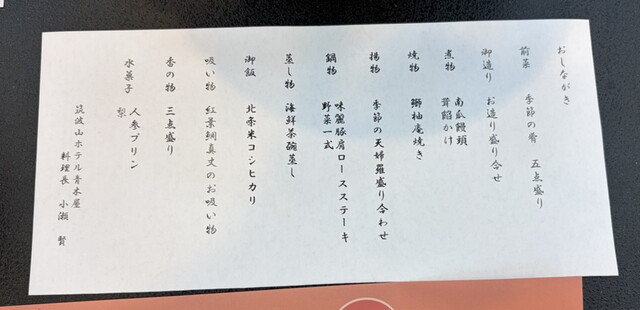 おしながき
前菜　季節の肴　五点盛り
御造り　お造り盛り合せ
煮物　南瓜饅頭
茸餡かけ
焼物　鰤柚庵焼き
揚物　季節の天婦羅盛り合わせ
鍋物　味麗豚肩ロースステーキ
野菜一式
蒸し物　海鮮茶碗蒸し
御飯　北条米コシヒカリ
吸い物　紅葉鯛真丈のお吸い物
香の物　三点盛り
水菓子　人参プリン
梨
筑波山ホテル青木屋
料理長　小瀬　賢